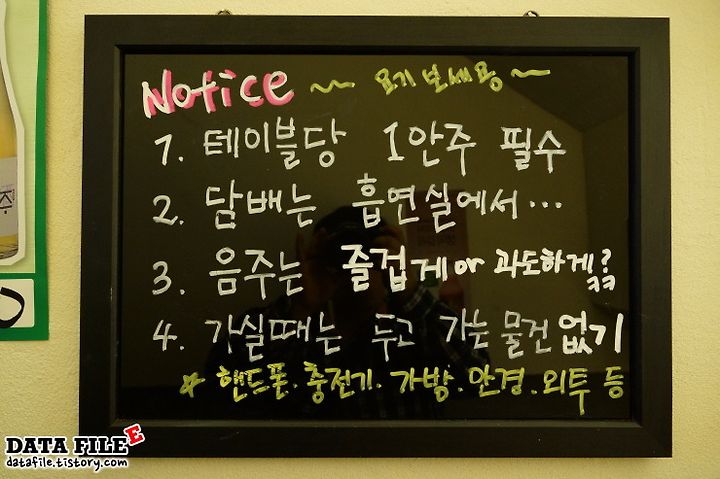 Notice ~ 요기 보세용 ~
1. 테이블당 1안주 필수
2. 담배는 흡연실에서...
3. 음주는 즐겁게 or 과도하게?ㅋㅋ
4. 가실때는 두고 가는 물건 없기
☆ 핸드폰. 충전기. 가방. 안경. 외투 등
DATA FILE E
datafile.tistory.com